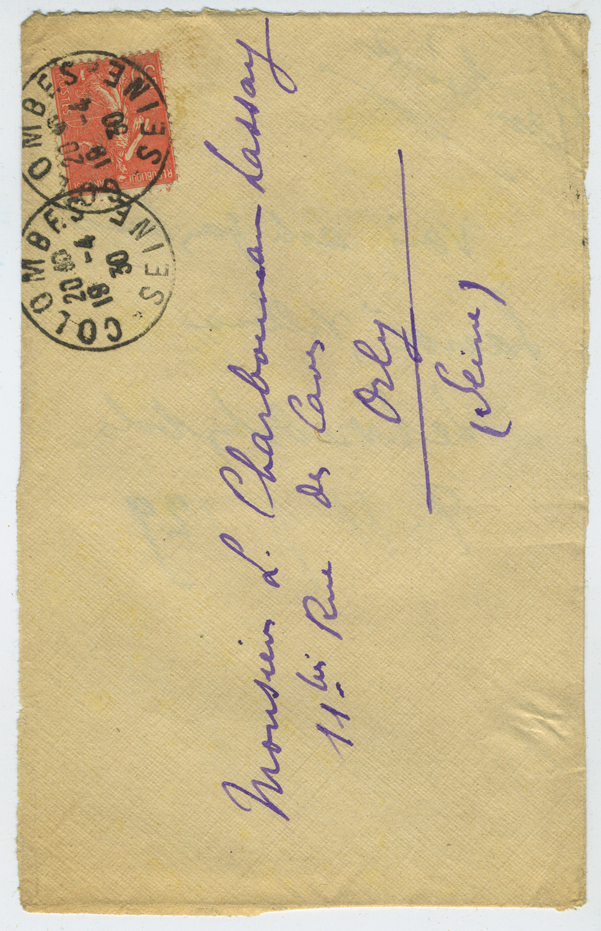 COLOMBES SEINE
20 40
18 -4
30
REPUBLIQUE
COLOMBES SEINE
20 40
18 -4
30
Monsieur L. Charbonneau Lassay
11bis Rue des Caves
Orly
(Seine)